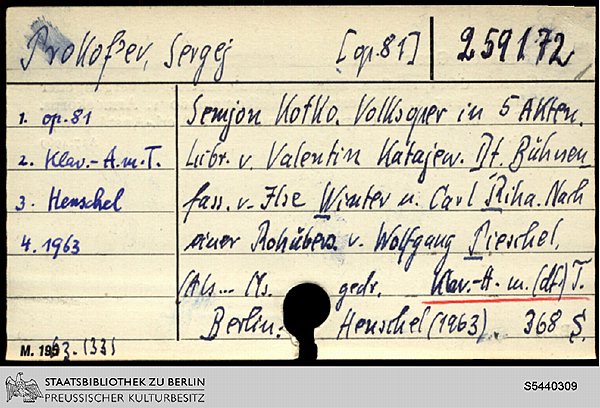 Prokofjev, Sergej [op.81] 259172
1. op.81
2. Klav.-A.m.T.
3. Henschel
4. 1963
Semjon Kotko. Volksoper in 5 Akten.
Libr. v. Valentin Katajew. Dt. Bühnen
fass. v. Ilse Winter u. Carl Riha. Nach
einer Rohübers. v. Wolfgang Pieschel.
(Als... Ms. gedr. Klav.-A. m. (dt.) T.
Berlin: Henschel (1963). 368 S.
M. 1963. 1331
STAATSBIBLIOTHEK ZU BERLIN
PREUSSISCHER KULTURBESITZ
S5440309